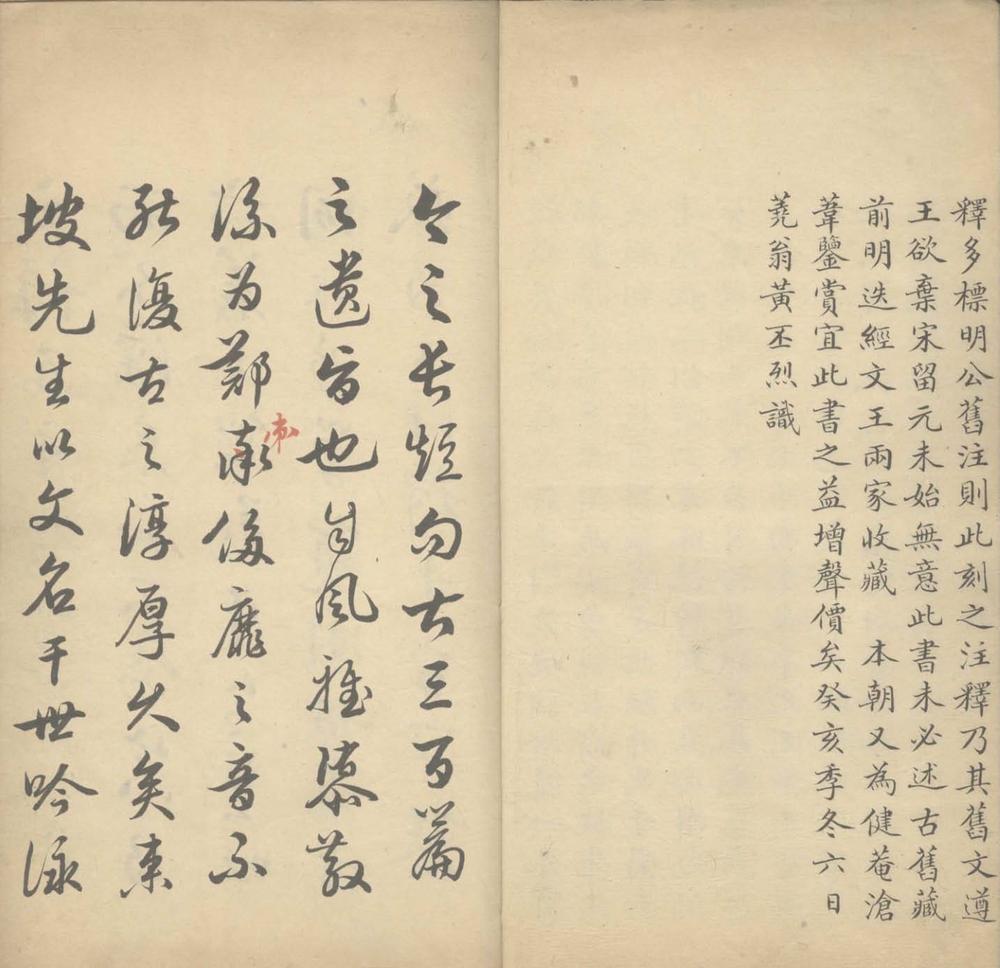 釋多標明公舊注則此刻之注釋乃其舊文遵
王欲棄宋留元未始無意此書未必述古舊藏
前明迭經文王兩家收藏　本朝又為健菴滄
葦鑒賞宜此書之益增聲價矣癸亥季冬六日
蕘翁黃丕烈識
今之長短句古三百篇
之遺旨也自風雅隳散
流為鄭衛侈靡之音不
能復古之淳厚久矣東
坡先生以文名于世吟詠